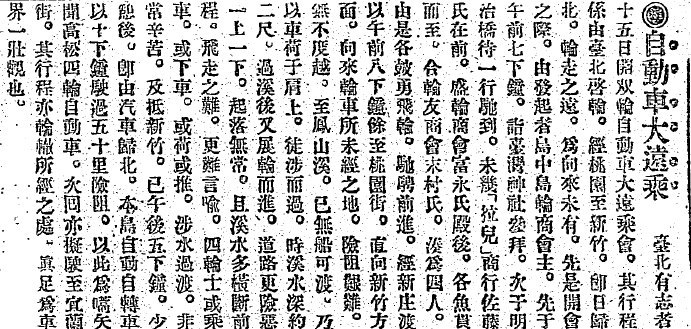 ◉自動車大遠乘　臺北有志者
十五日開双輪自動車大遠乘會。其行程
係由臺北啓輪。經桃園至新竹。卽日歸
北。輪走之遠。爲向來未有。先是開會
之際。由發起者島中島輪商會主。先于
午前七下鐘。詣臺灣神社參拜。次于明
治橋待一行馳到。未幾「拉兒」商行佐藤
氏在前。盛輪商會富永氏殿後。各魚貫
而至。合輪友商會末村氏。湊爲四人。
由是各鼓勇飛輪。馳騁前進。經新庄渡
以午前八下鐘餘至桃園街。直向新竹方
面。向來輪車所未經之地。險阻艱難。
無不度越。至鳳山溪。已無船可渡。乃
以車荷于肩上。徒涉而過。時溪水深約
二尺。過溪後又展輪而進。道路更險惡
一上一下。起落無常。且溪水多橫斷前
程。飛走之難。更難言喻。四輪士或乘
車。或下車。或荷或推。涉水過渡。非
常辛苦。及抵新竹。已午後五下鐘。少
憩後。卽由汽車歸北。本島自動自轉車
以十下鐘駛過五十里險阻。以此爲嚆矢
聞高松四輪自動車。次回亦擬駛至宜蘭
街。其行程亦輪轍所經之處。眞足爲車
界一壯觀也。